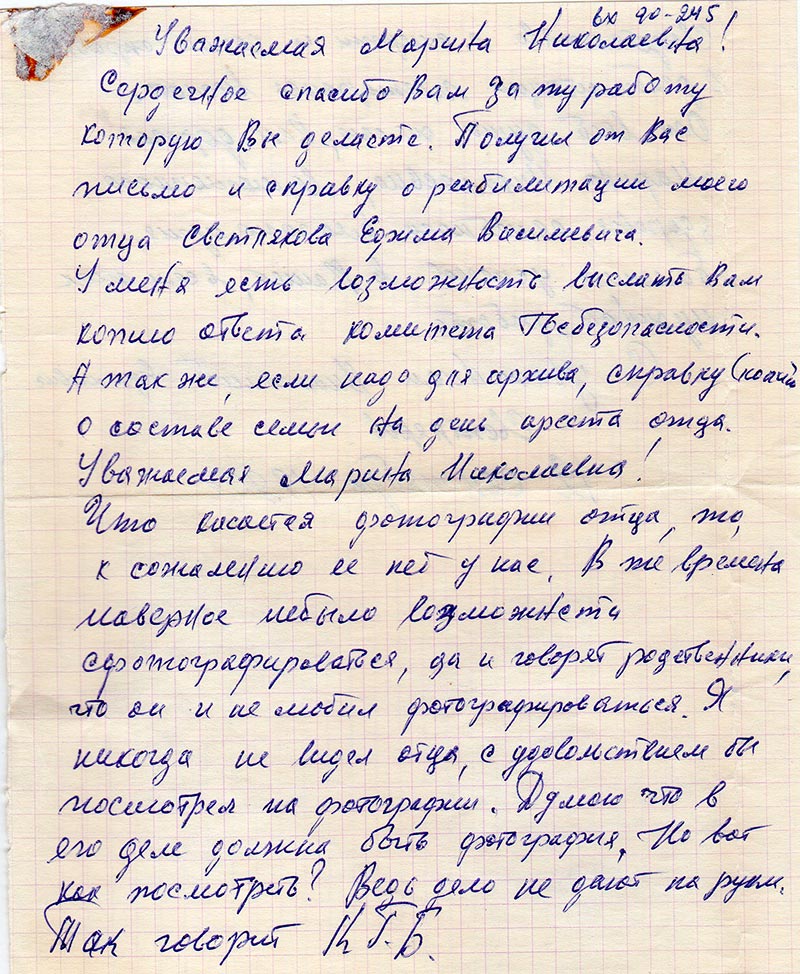 вх 90-245
Уважаемая Марина Николаевна!
Сердечное спасибо Вам за ту работу
которую Вы делаете. Получил от Вас
письмо и справку о реабилитации моего
отца Светлякова Ефима Васильевича.
У меня есть возможность выслать Вам
копию ответа комитета Госбезопасности.
А так же, если надо для архива, справку (копию
о составе семьи на день ареста отца.
Уважаемая Марина Николаевна!
Что касается фотографии отца, то,
к сожалению ее нет у нас. В те времена
наверное небыло возможности
сфотографироваться, да и говорят родственники,
что он и не любил фотографироваться. Я
никогда не видел отца, с удовольствием бы
посмотрел на фотографии. Думаю что в
его деле должна быть фотография. Но вот
как посмотреть? Ведь дело не дают на руки.
Так говорит К.Г.Б.